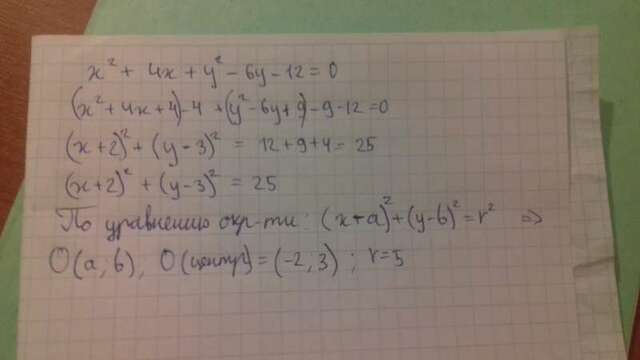 x² + 4x + y² - 6y - 12 = 0
(x² + 4x + 4) - 4 + (y² - 6y + 9) - 9 - 12 = 0
(x + 2)² + (y - 3)² = 12 + 9 + 4 = 25
(x + 2)² + (y - 3)² = 25
По уравнению окр-ти: (x + a)² + (y - b)² = r² ⇒
O(a; b), O(центр) = (-2; 3); r = 5